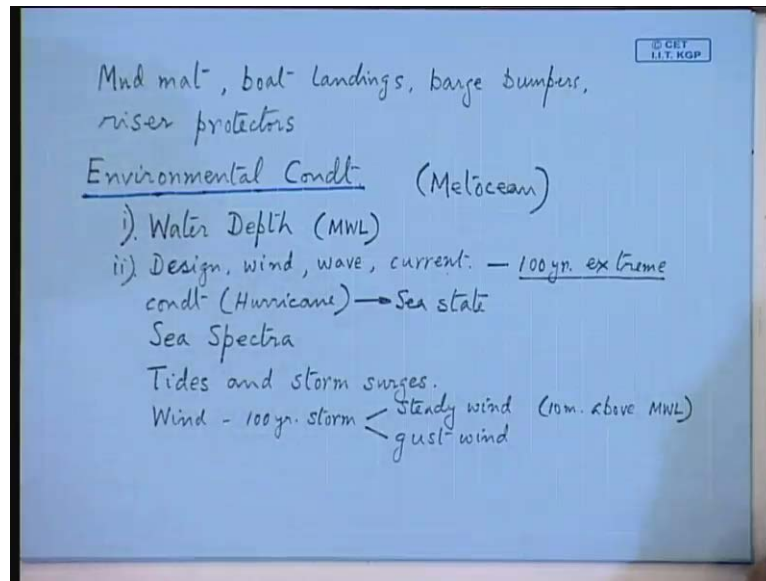 © CET
I.I.T. KGP
Mud mat, boat landings, barge bumpers,
riser protectors
Environmental Condt. (Metocean)
i). Water Depth (MWL)
ii). Design, wind, wave, current. — 100 yr. extreme
condt (Hurricane) → Sea state
Sea Spectra
Tides and storm surges.
Wind - 100 yr. storm
steady wind (10m. above MWL)
gust wind